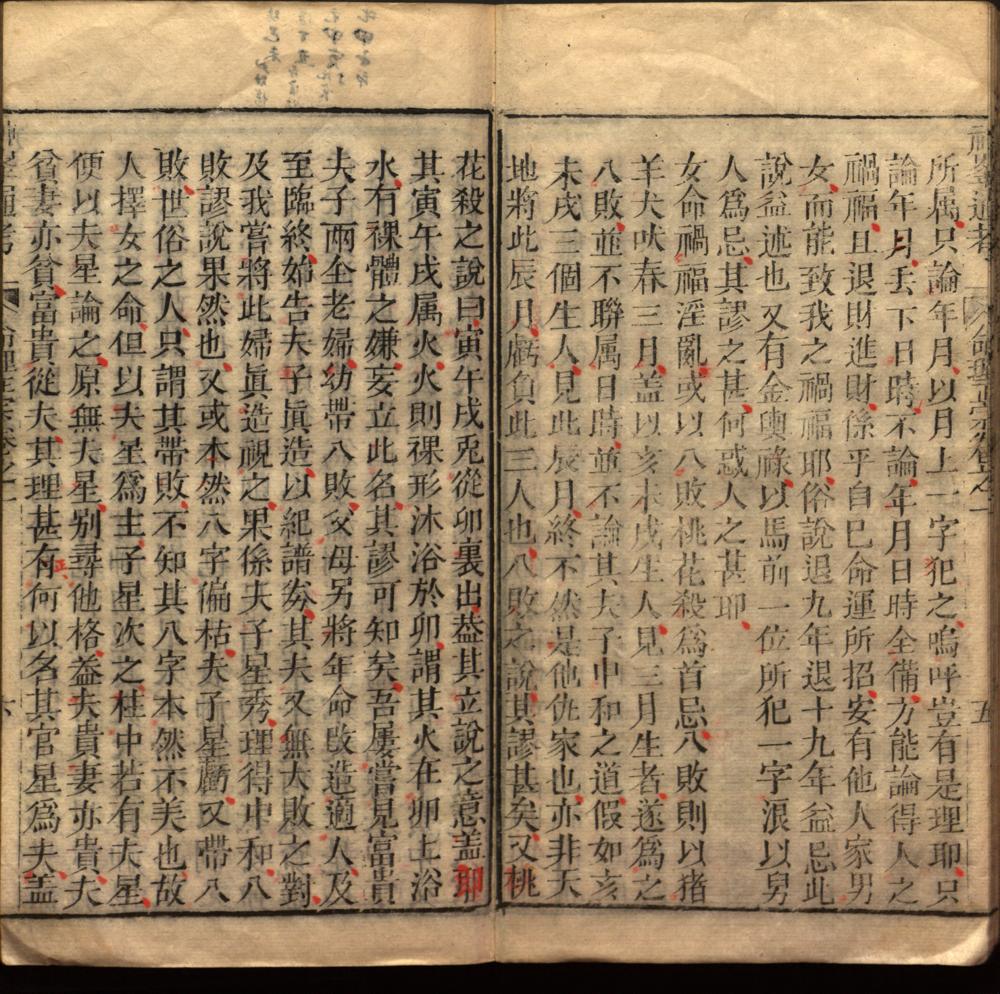 神峯通考
命理正宗卷之一
五
所属只論年月以月上一字犯之嗚呼豈有是理耶只
論年月丢下日時不論年月日時全備方能論得人之
禍福且退財進財係乎自巳命運所招安有他人家男
女而能致我之禍福耶俗說退九年退十九年益忌此
說益述也又有金輿祿以馬前一位所犯一字浪以舅
人爲忌其謬之甚何惑人之甚耶
女命禍福淫亂或以八敗桃花殺爲首忌八敗則以猪
羊犬吠春三月盖以亥未戌生人見三月生者遂爲之
八敗並不聯属日時並不論其夫子中和之道假如亥
未戌三個生人見此辰月終不然是他仇家也亦非天
地將此辰月虧負此三人也八敗之說其謬甚矣又桃
花殺之說曰寅午戌兎從卯裏出葢其立說之意盖卽
其寅午戌属火火則裸形沐浴於卯謂其火在卯上浴
水有裸體之嫌妄立此名其謬可知矣吾屡嘗見富貴
夫子兩全老婦幼帶八敗父母另將年命改造適人及
至臨終始告夫子眞造以紀譜奈其夫又無大敗之對
及我嘗將此婦眞造視之果係夫子星秀理得中和八
敗謬說果然也又或本然八字偏枯夫子星虧又帶八
敗世俗之人只謂其帶敗不知其八字本然不美也故
人擇女之命但以夫星爲主子星次之柱中若有夫星
便以夫星論之原無夫星别尋他格益夫貴妻亦貴夫
貧妻亦貧富貴從夫其理甚有何以名其官星爲夫盖
神峯通考
命理正宗卷之一
六